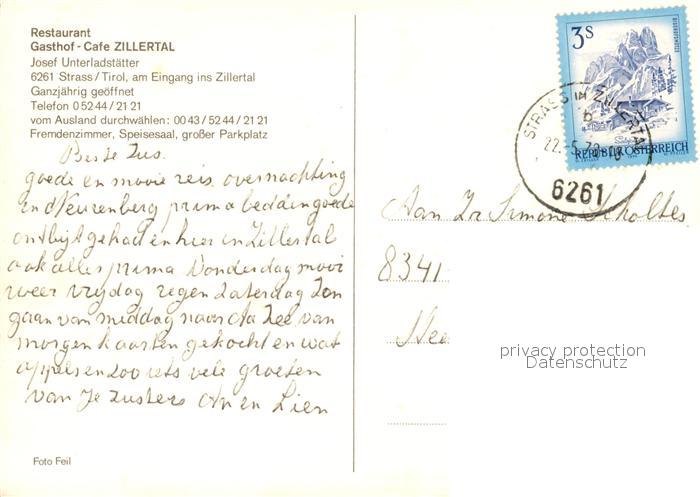 Restaurant
Gasthof - Cafe ZILLERTAL
Josef Unterladstätter
6261 Strass/Tirol, am Eingang ins Zillertal
Ganzjährig geöffnet
Telefon 0 52 44 / 21 21
vom Ausland durchwählen: 00 43 / 52 44 / 21 21
Fremdenzimmer, Speisesaal, großer Parkplatz
Beste Zus.
goede en mooie reis. overnachting
in Neurenberg prima bedden goede
ontbijt gehad en hier in Zillertal
ook alles prima Donderdag mooi
weer vrydag regen Zaterdag Zon
gaan van middag naar de Zee van
morgen kaarten gekocht en wat
appels en zoo iets vele groeten
van Je Zusters An en Lien
Foto Feil
3S
BISCHOFSMÜTZE
REPUBLIK ÖSTERREICH
STRASS IM ZILLERTAL
b
22.-5.
6261
Aan Zr Simone Scholtes.
8341
Hee
privacy protection
Datenschutz